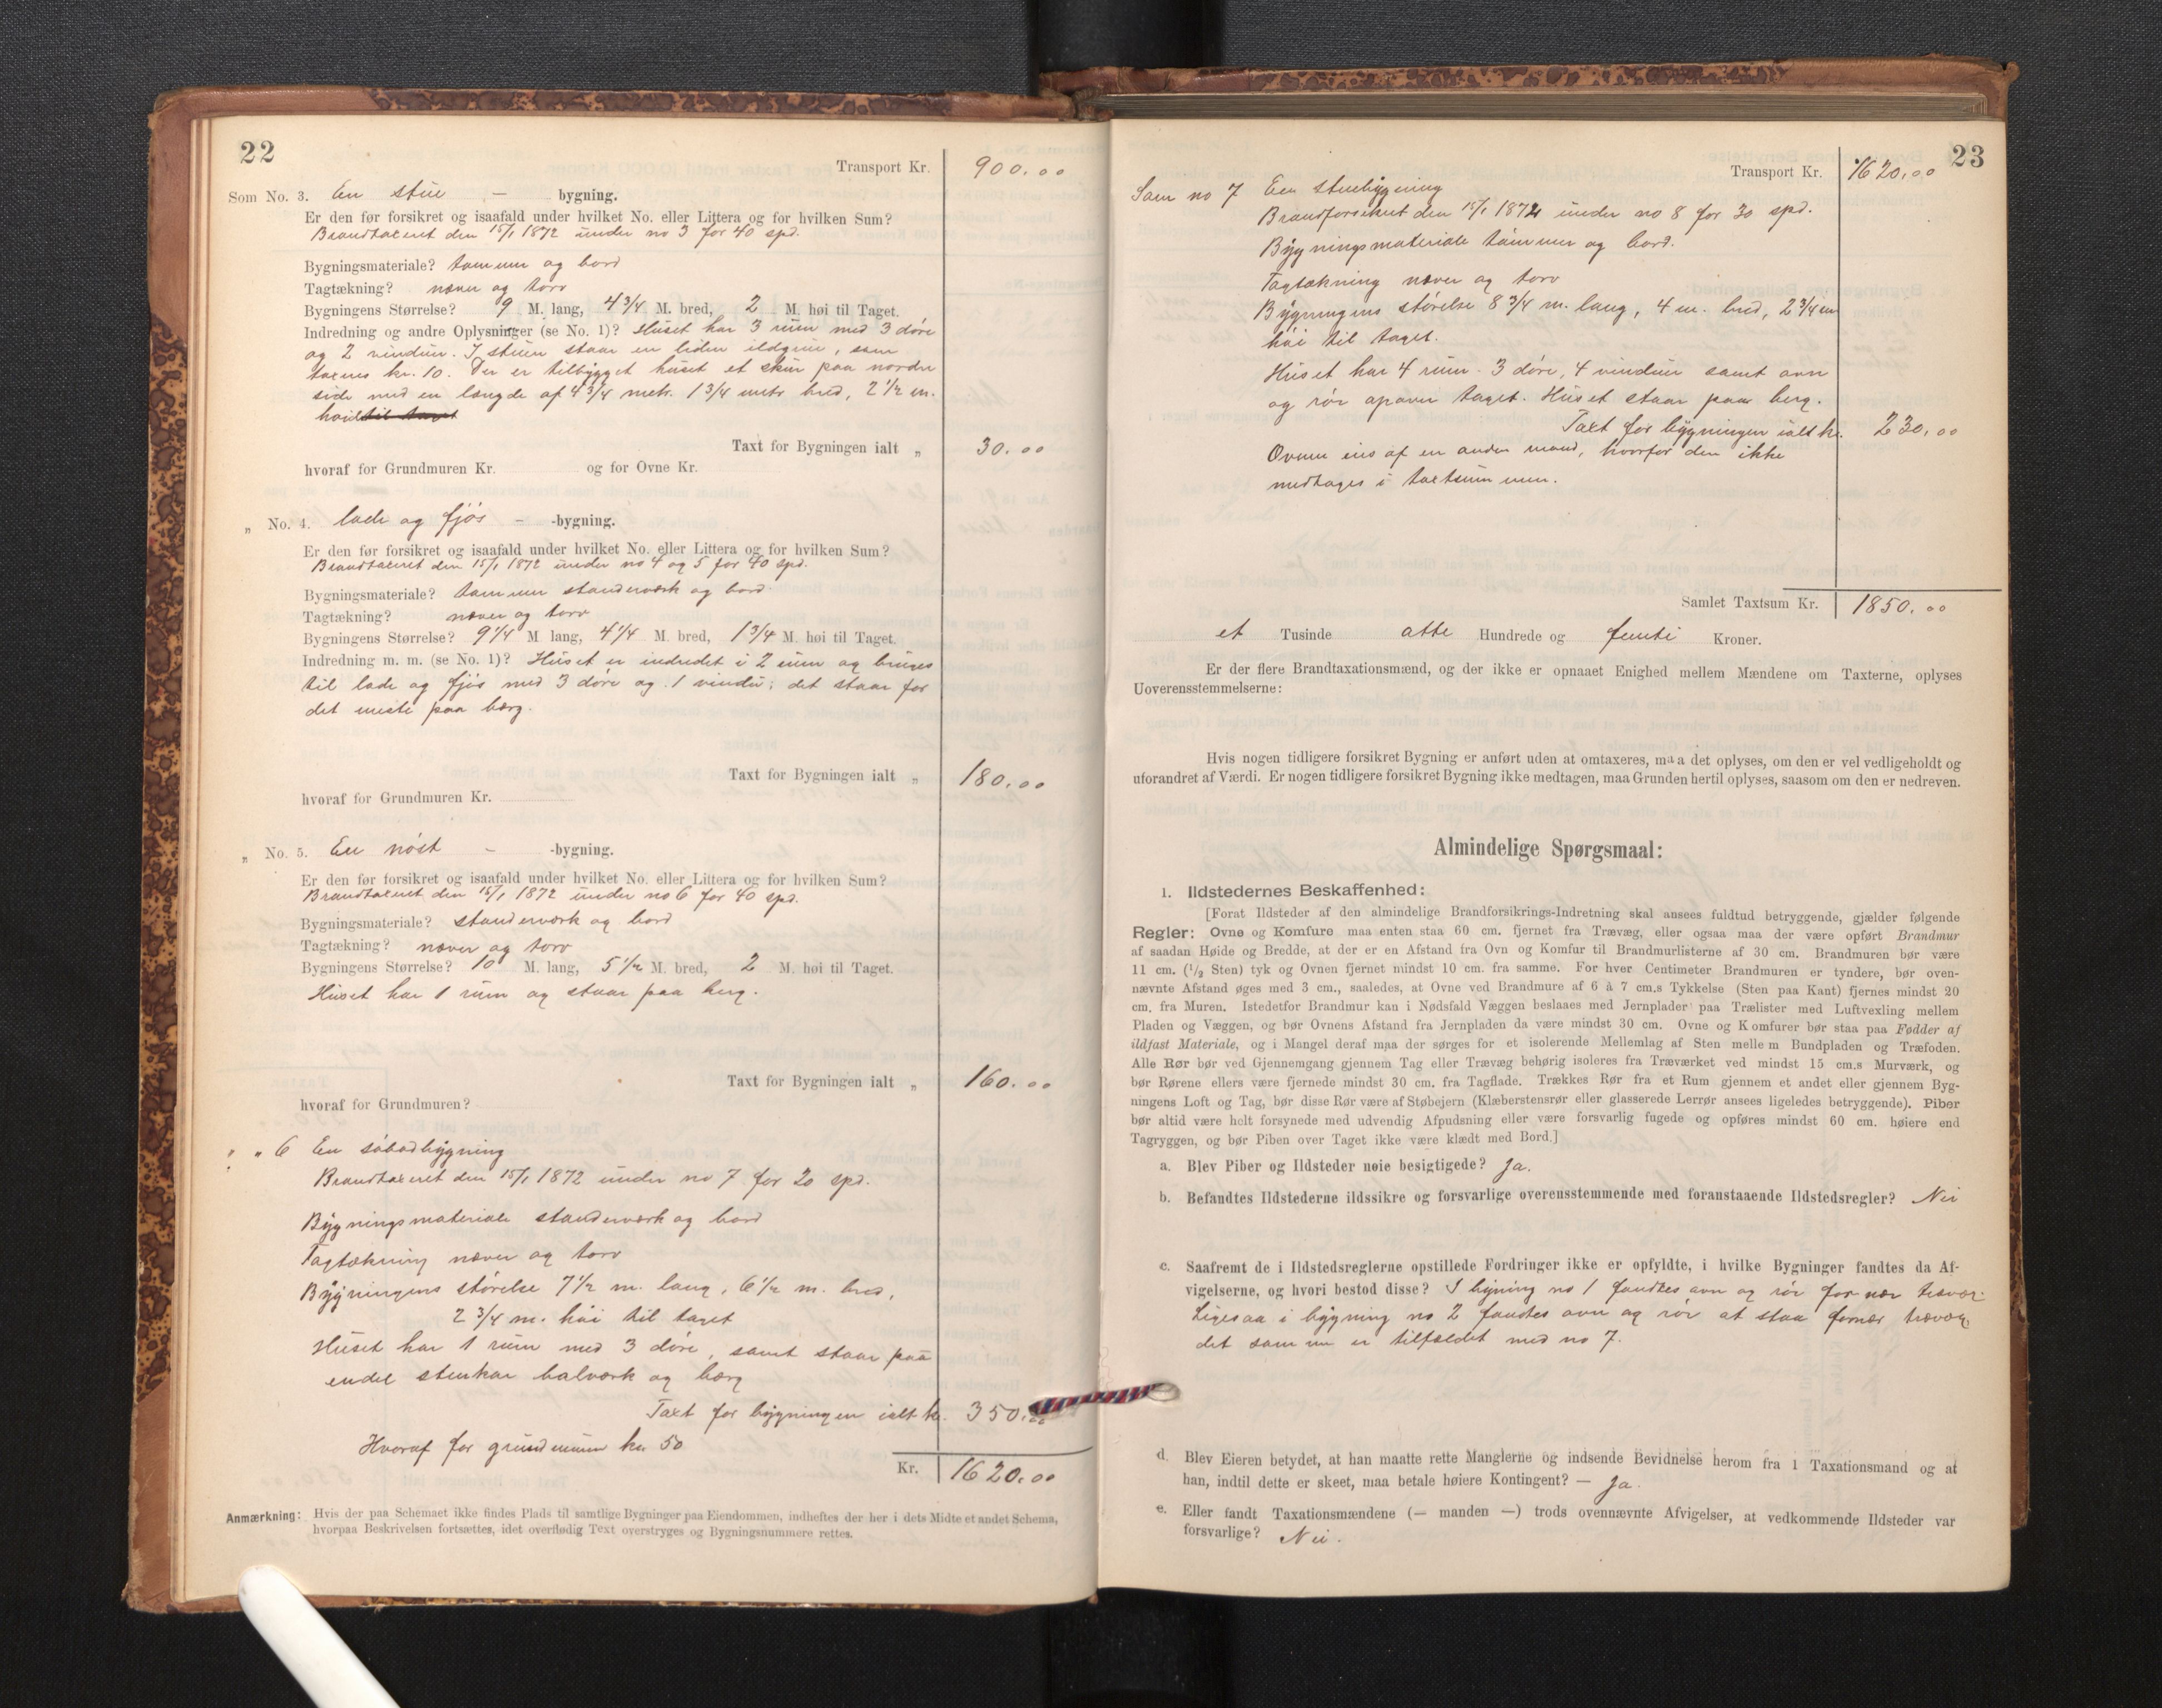 22
Transport Kr. 900.00
Som No. 3. En stue - bygning.
Er den før forsikret og isaafald under hvilket No. eller Littera og for hvilken Sum?
Brandtaxeret den 15/1 1872 under no 3 for 40 spd.
Bygningsmateriale? tømmer og bord
Tagtækning? næver og torv
Bygningens Størrelse? 9 M. lang, 4 3/4 M. bred, 2 M. høi til Taget.
Indredning og andre Oplysninger (se No. 1)? Huset har 3 rum med 3 døre
og 2 vinduer. I stuen staar en liden ildgrue, som
taxeres kr. 10. Der er tilbygget huset et skur paa nordre
side med en længde af 4 3/4 metr. 1 3/4 metr bred, 2 1/2 m.
høid til taget
Taxt for Bygningen ialt „ 30.00
hvoraf for Grundmuren Kr. og for Ovne Kr.
„ No. 4. lade og fjøs - -bygning.
Er den før forsikret og isaafald under hvilket No. eller Littera og for hvilken Sum?
Brandtaxeret den 15/1 1872 under no 4 og 5 for 40 spd.
Bygningsmateriale? tømmer standerværk og bord
Tagtækning? næver og torv
Bygningens Størrelse? 9 1/4 M. lang, 4 1/4 M. bred, 1 3/4 M. høi til Taget.
Indredning m. m. (se No. 1)? Huset er indredet i 2 rum og bruges
til lade og fjøs med 3 døre og 1 vindu; det staar for
det meste paa berg.
Taxt for Bygningen ialt „ 180.00
hvoraf for Grundmuren Kr.
„ No. 5. En nøst - -bygning.
Er den før forsikret og isaafald under hvilket No. eller Littera og for hvilken Sum?
Brandtaxeret den 15/1 1872 under no 6 for 40 spd.
Bygningsmateriale? standerværk og bord
Tagtækning? næver og torv
Bygningens Størrelse? 10 M. lang, 5 1/2 M. bred, 2 M. høi til Taget.
Huset har 1 rum og staar paa berg.
Taxt for Bygningen ialt „ 160.00
hvoraf for Grundmuren?
„ „ 6 En søbodbygning
Brandtaxeret den 15/1 1872 under no 7 for 20 spd.
Bygningsmateriale standerværk og bord
Tagtækning næver og torv
Bygningens størelse 7 1/2 m. lang, 6 1/2 m. bred,
2 3/4 m. høi til taget
Huset har 1 rum med 3 døre, samt staar paa
endel stenkar balværk og bærg
Taxt for bygningen ialt kr. 350.00
Hvoraf for grundmuren kr 50
Kr. 1620.00
Anmærkning: Hvis der paa Schemaet ikke findes Plads til samtlige Bygninger paa Eiendommen, indheftes der her i dets Midte et andet Schema,
hvorpaa Beskrivelsen fortsættes, idet overflødig Text overstryges og Bygningsnummere rettes.
23
Transport Kr. 1620.00
Som no 7 Een stuebygning
Brandforsikret den 15/1 1872 under no 8 for 30 spd.
Bygningsmateriale tømmer og bord.
Tagtækning næver og torv
Bygningens størelse 8 3/4 m. lang, 4 m. bred, 2 3/4 m
høi til taget.
Huset har 4 rum. 3 døre, 4 vinduer samt ovn
og rør opover taget. Huset staar paa berg.
Taxt for bygningen ialt kr. 230.00
Ovnen eies af en anden mand, hvorfor den ikke
medtages i taxtsummen.
Samlet Taxtsum Kr. 1850.00
et Tusinde otte Hundrede og femti Kroner.
Er der flere Brandtaxationsmænd, og der ikke er opnaaet Enighed mellem Mændene om Taxterne, oplyses
Uoverensstemmelserne:
Hvis nogen tidligere forsikret Bygning er anført uden at omtaxeres, maa det oplyses, om den er vel vedligeholdt og
uforandret af Værdi. Er nogen tidligere forsikret Bygning ikke medtagen, maa Grunden hertil oplyses, saasom om den er nedreven.
Almindelige Spørgsmaal:
1. Ildstedernes Beskaffenhed:
[Forat Ildsteder af den almindelige Brandforsikrings-Indretning skal ansees fuldtud betryggende, gjælder følgende
Regler: Ovne og Komfure maa enten staa 60 cm. fjernet fra Trævæg, eller ogsaa maa der være opført Brandmur
af saadan Høide og Bredde, at der er en Afstand fra Ovn og Komfur til Brandmurlisterne af 30 cm. Brandmuren bør være
11 cm. (1/2 Sten) tyk og Ovnen fjernet mindst 10 cm. fra samme. For hver Centimeter Brandmuren er tyndere, bør oven-
nævnte Afstand øges med 3 cm., saaledes, at Ovne ved Brandmure af 6 à 7 cm.s Tykkelse (Sten paa Kant) fjernes mindst 20
cm. fra Muren. Istedetfor Brandmur kan i Nødsfald Væggen beslaaes med Jernplader paa Trælister med Luftvexling mellem
Pladen og Væggen, og bør Ovnens Afstand fra Jernpladen da være mindst 30 cm. Ovne og Komfurer bør staa paa Fødder af
ildfast Materiale, og i Mangel deraf maa der sørges for et isolerende Mellemlag af Sten mellem Bundpladen og Træfoden.
Alle Rør bør ved Gjennemgang gjennem Tag eller Trævæg behørig isoleres fra Træværket ved mindst 15 cm.s Murværk, og
bør Rørene ellers være fjernede mindst 30 cm. fra Tagflade. Trækkes Rør fra et Rum gjennem et andet eller gjennem Byg-
ningens Loft og Tag, bør disse Rør være af Støbejern (Klæberstensrør eller glasserede Lerrør ansees ligeledes betryggende). Piber
bør altid være helt forsynede med udvendig Afpudsning eller være forsvarlig fugede og opføres mindst 60 cm. høiere end
Tagryggen, og bør Piben over Taget ikke være klædt med Bord.]
a. Blev Piber og Ildsteder nøie besigtigede? Ja.
b. Befandtes Ildstederne ildssikre og forsvarlige overensstemmende med foranstaaende Ildstedsregler? Nei
c. Saafremt de i Ildstedsreglerne opstillede Fordringer ikke er opfyldte, i hvilke Bygninger fandtes da Af-
vigelserne, og hvori bestod disse? I bygning no 1 fandtes ovn og rør for nær trævær.
Ligesaa i bygning no 2 fandtes ovn og rør at staa fornær trævæg
det samme er tilfældet med no 7.
d. Blev Eieren betydet, at han maatte rette Manglerne og indsende Bevidnelse herom fra 1 Taxationsmand og at
han, indtil dette er skeet, maa betale høiere Kontingent? — Ja.
e. Eller fandt Taxationsmændene (— manden —) trods ovennævnte Afvigelser, at vedkommende Ildsteder var
forsvarlige? Nei.